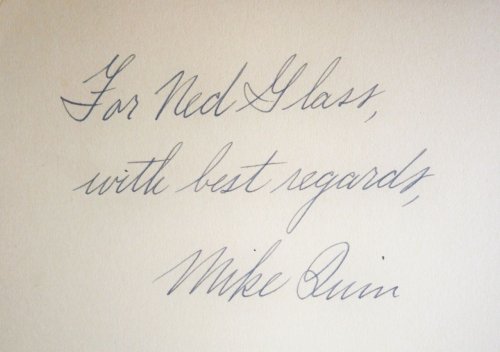 For Ned Glass,
with best regards,
Mike Quin